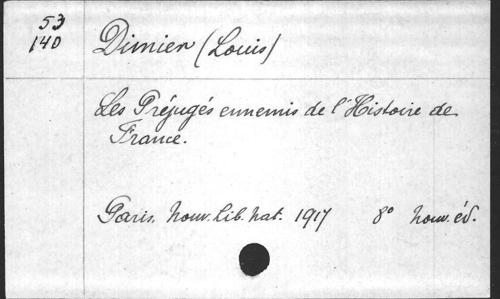 53
140
Dimier (Louis)
Les Préjugés ennemis de l'Histoire de
France.
Paris. Nouv. Lib. Nat. 1917 8° nouv. éd.